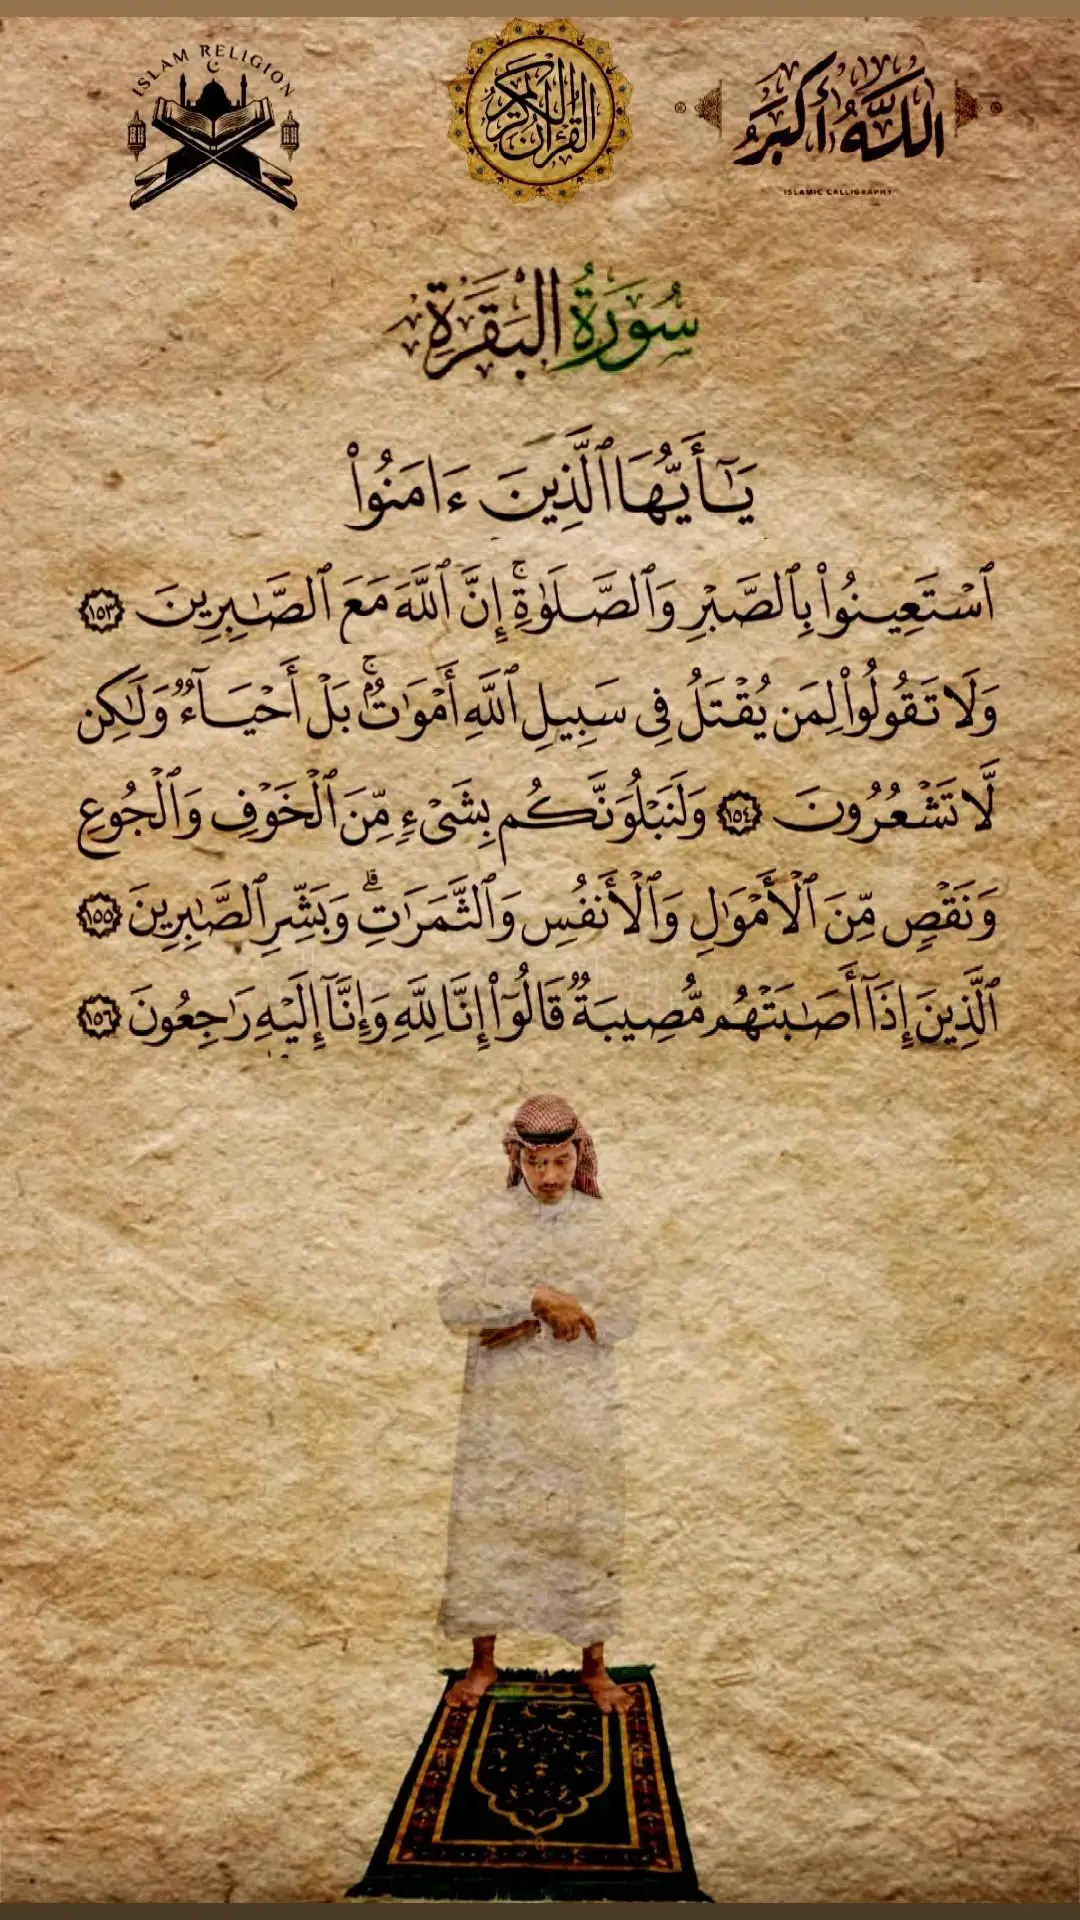 ISLAM RELIGION
القرآن الكريم
اللَّهُ أَكْبَرُ
ISLAMIC CALLIGRAPHY
سُورَةُ الْبَقَرَةِ
يَـٰٓأَيُّهَا ٱلَّذِينَ ءَامَنُوا۟
ٱسْتَعِينُوا۟ بِٱلصَّبْرِ وَٱلصَّلَوٰةِ ۚ إِنَّ ٱللَّهَ مَعَ ٱلصَّـٰبِرِينَ ١٥٣
وَلَا تَقُولُوا۟ لِمَن يُقْتَلُ فِى سَبِيلِ ٱللَّهِ أَمْوَٰتٌۢ ۚ بَلْ أَحْيَآءٌ وَلَـٰكِن
لَّا تَشْعُرُونَ ١٥٤ وَلَنَبْلُوَنَّكُم بِشَىْءٍ مِّنَ ٱلْخَوْفِ وَٱلْجُوعِ
وَنَقْصٍ مِّنَ ٱلْأَمْوَٰلِ وَٱلْأَنفُسِ وَٱلثَّمَرَٰتِ ۗ وَبَشِّرِ ٱلصَّـٰبِرِينَ ١٥٥
ٱلَّذِينَ إِذَآ أَصَـٰبَتْهُم مُّصِيبَةٌ قَالُوٓا۟ إِنَّا لِلَّهِ وَإِنَّآ إِلَيْهِ رَٰجِعُونَ ١٥٦